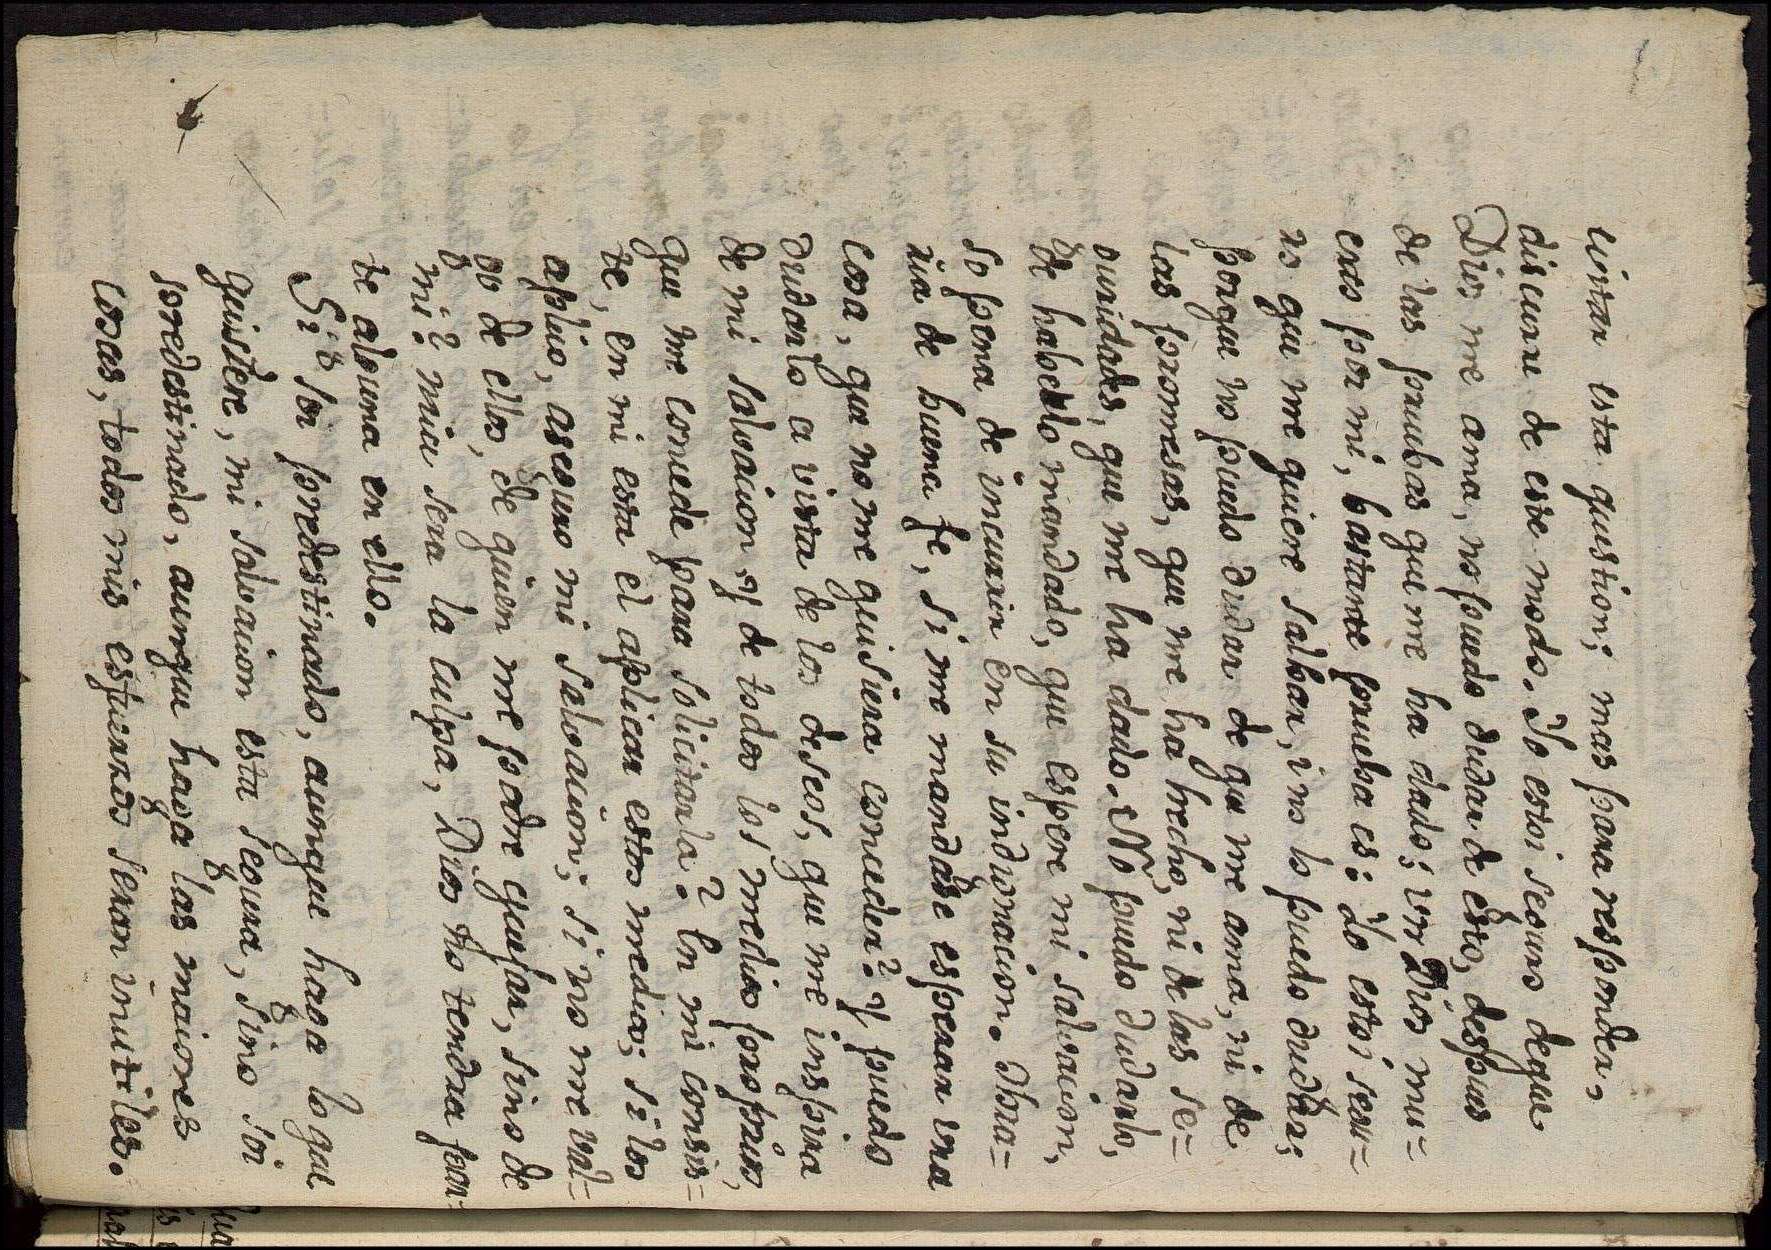 citar esta question; mas para responder,
discurre de este modo. Yo estoi seguro de que
Dios me ama, no puedo dudar de esto, despues
de las pruebas que me ha dado; un Dios mu=
erto por mi, bastante prueba es: Yo estoi segu=
ro que me quiere salbar, i no lo puedo dudar;
porque no puedo dudar de que me ama, ni de
las promesas, que me ha hecho, ni de las se=
guridades, que me ha dado. No puedo dudarlo,
de haberlo mandado, que espere mi salvacion,
so pena de incurrir en su indignacion. Obra=
ria de buena fe, si me mandase esperar una
cosa, que no me quisiera conceder? Y puedo
dudarlo a vista de los deseos, que me inspira
de mi salvacion, y de todos los medios proprios,
que me concede para solicitarla? En mi consis=
te, en mi esta el applicar estos medios; si los
aplico, aseguro mi salvacion; si no me val=
go de ellos, de quien me podre quejar, sino de
mi? mia sera la culpa, Dios no tendra par=
te alguna en ello.
Si soi predestinado, aunque haga lo que
quisiere, mi salvacion esta segura, sino soi
predestinado, aunque haga las maiores
cosas, todos mis esfuerzos seran inutiles.